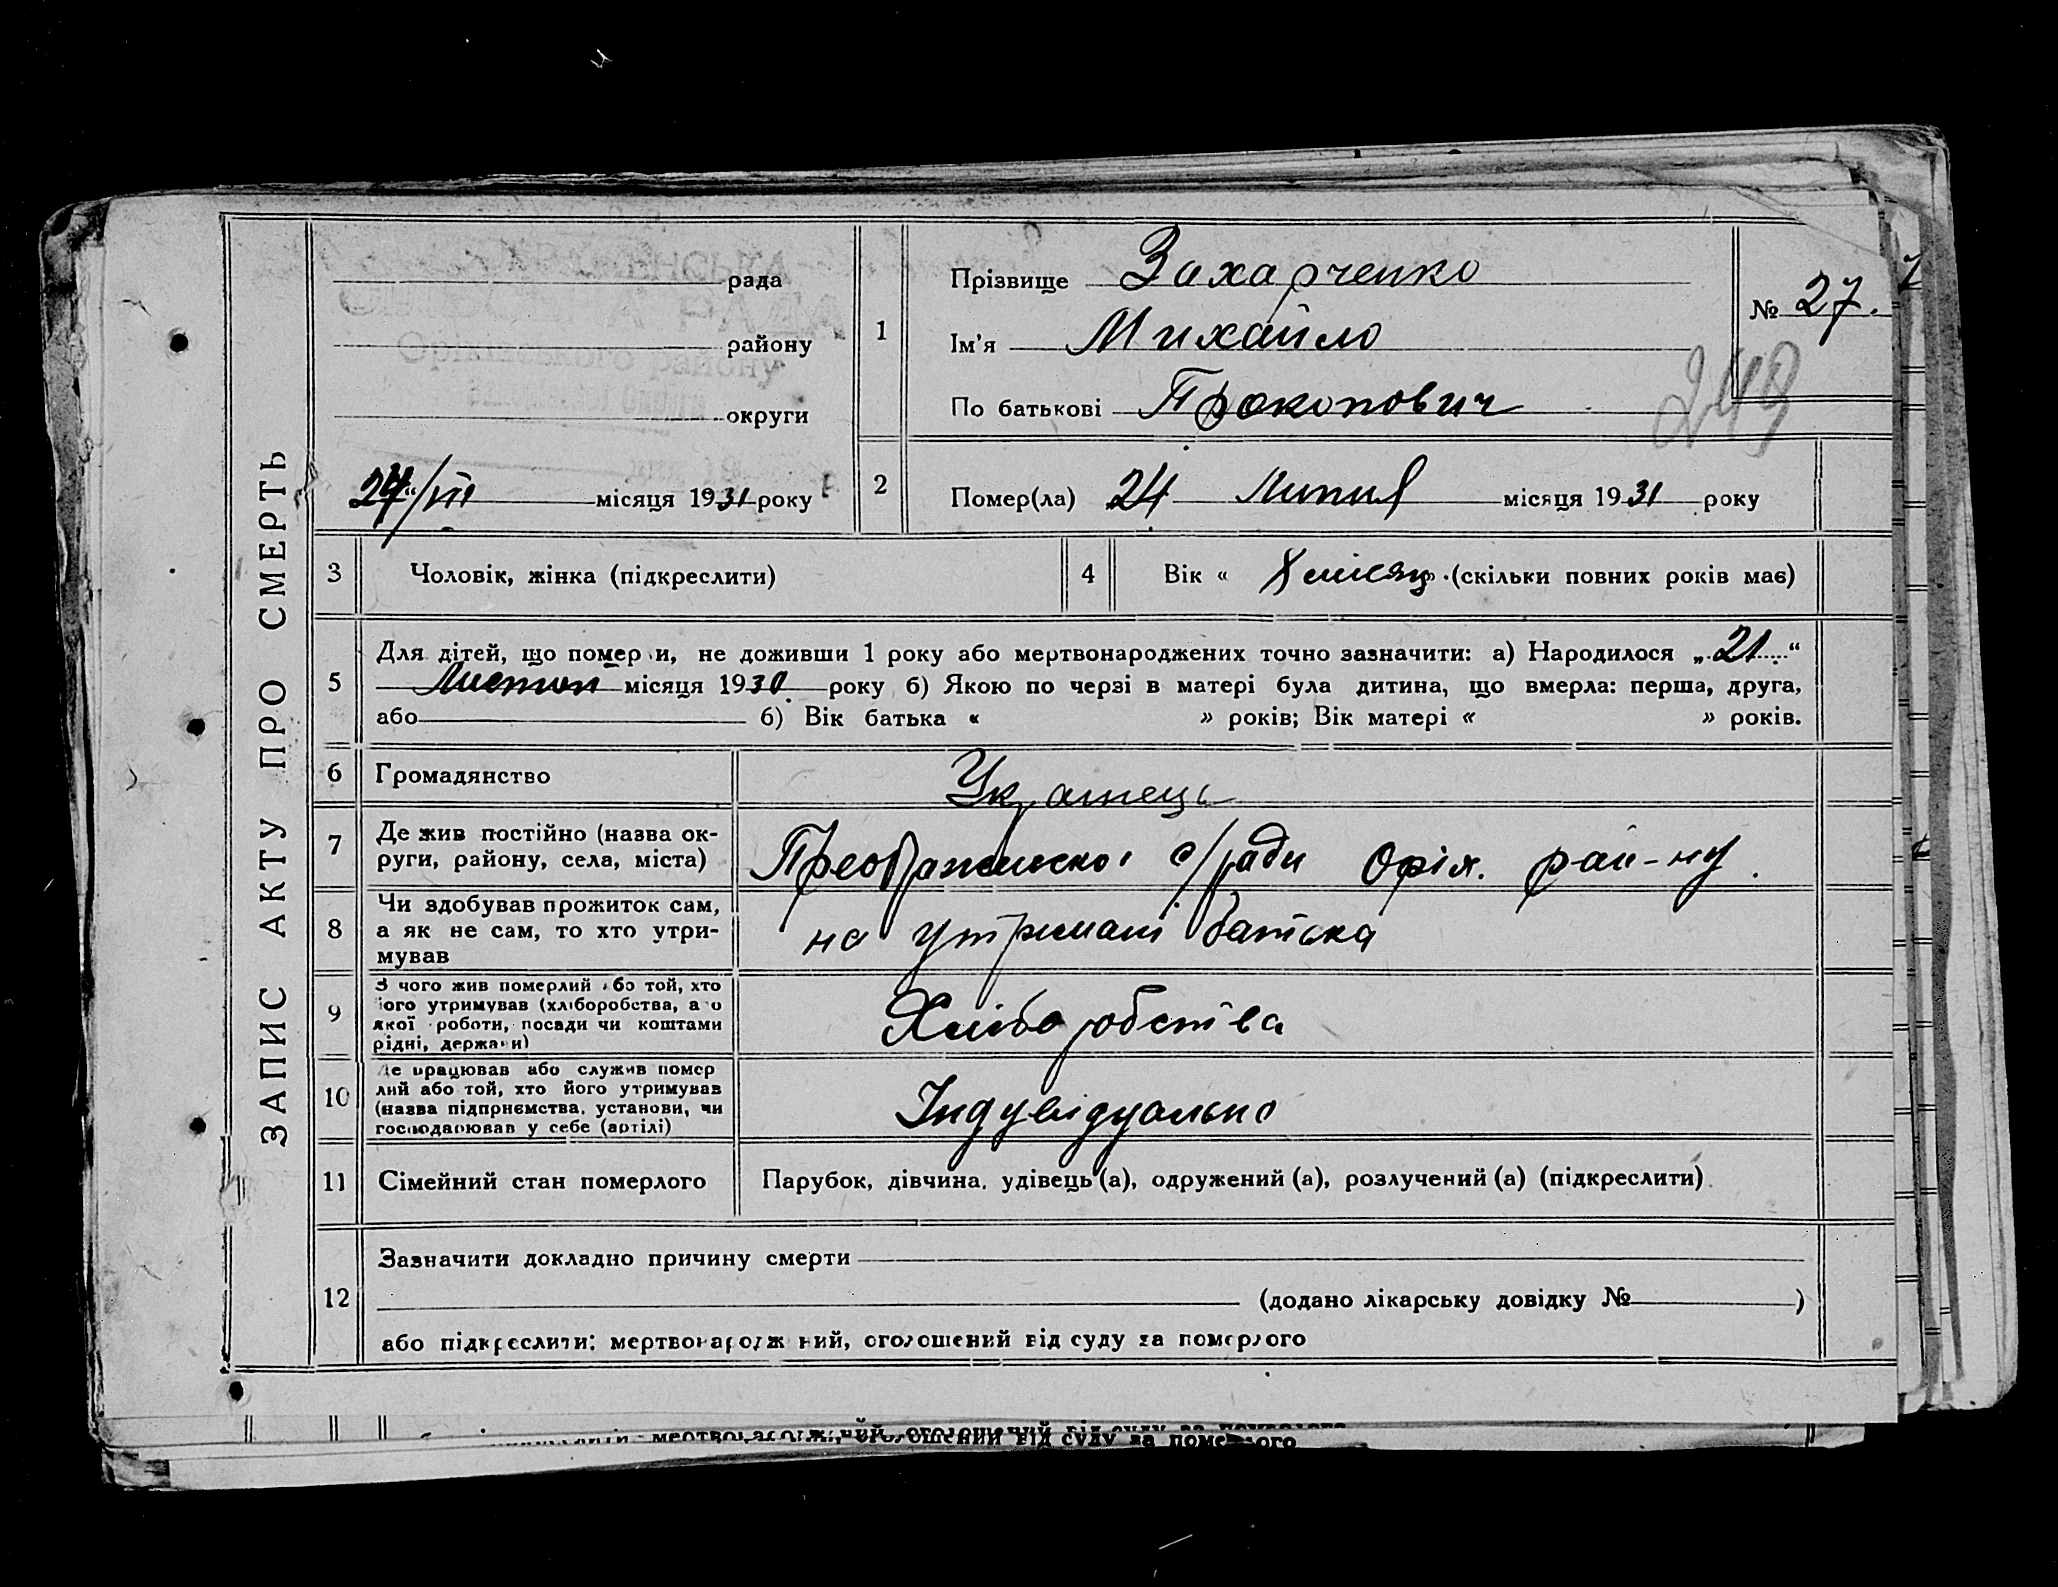 ЗАПИС АКТУ ПРО СМЕРТЬ
рада
району
Оріхівського району
округи
24/VII місяця 1931 року
1
Прізвище Захарченко
Ім'я Михайло
По батькові Прокопович
№ 27.
249
2
Помер(ла) 24 Липня місяця 1931 року
3 Чоловік, жінка (підкреслити)
4 Вік « місяц» (скільки повних років має)
5
Для дітей, що померли, не доживши 1 року або мертвонароджених точно зазначити: а) Народилося „21“
Листоп місяця 1930 року б) Якою по черзі в матері була дитина, що вмерла: перша, друга,
або б) Вік батька « » років; Вік матері « » років.
6 Громадянство Украінець
7 Де жив постійно (назва ок-
руги, району, села, міста)
Преображенської с/ради Оріх. рай-ну.
8 Чи здобував прожиток сам,
а як не сам, то хто утри-
мував
на утримані батька
9 З чого жив померлий або той, хто
його утримував (хліборобства, з
якої роботи, посади чи коштами
рідні, держави)
Хліборобства
10 Де працював або служив помер
лий або той, хто його утримував
(назва підприємства, установи, чи
господарював у себе (артілі)
Індувідуально
11 Сімейний стан померлого Парубок, дівчина, удівець (а), одружений (а), розлучений (а) (підкреслити)
12
Зазначити докладно причину смерти
(додано лікарську довідку № )
або підкреслити: мертвонароджений, оголошений від суду за померлого
оголошений від суду за померлого